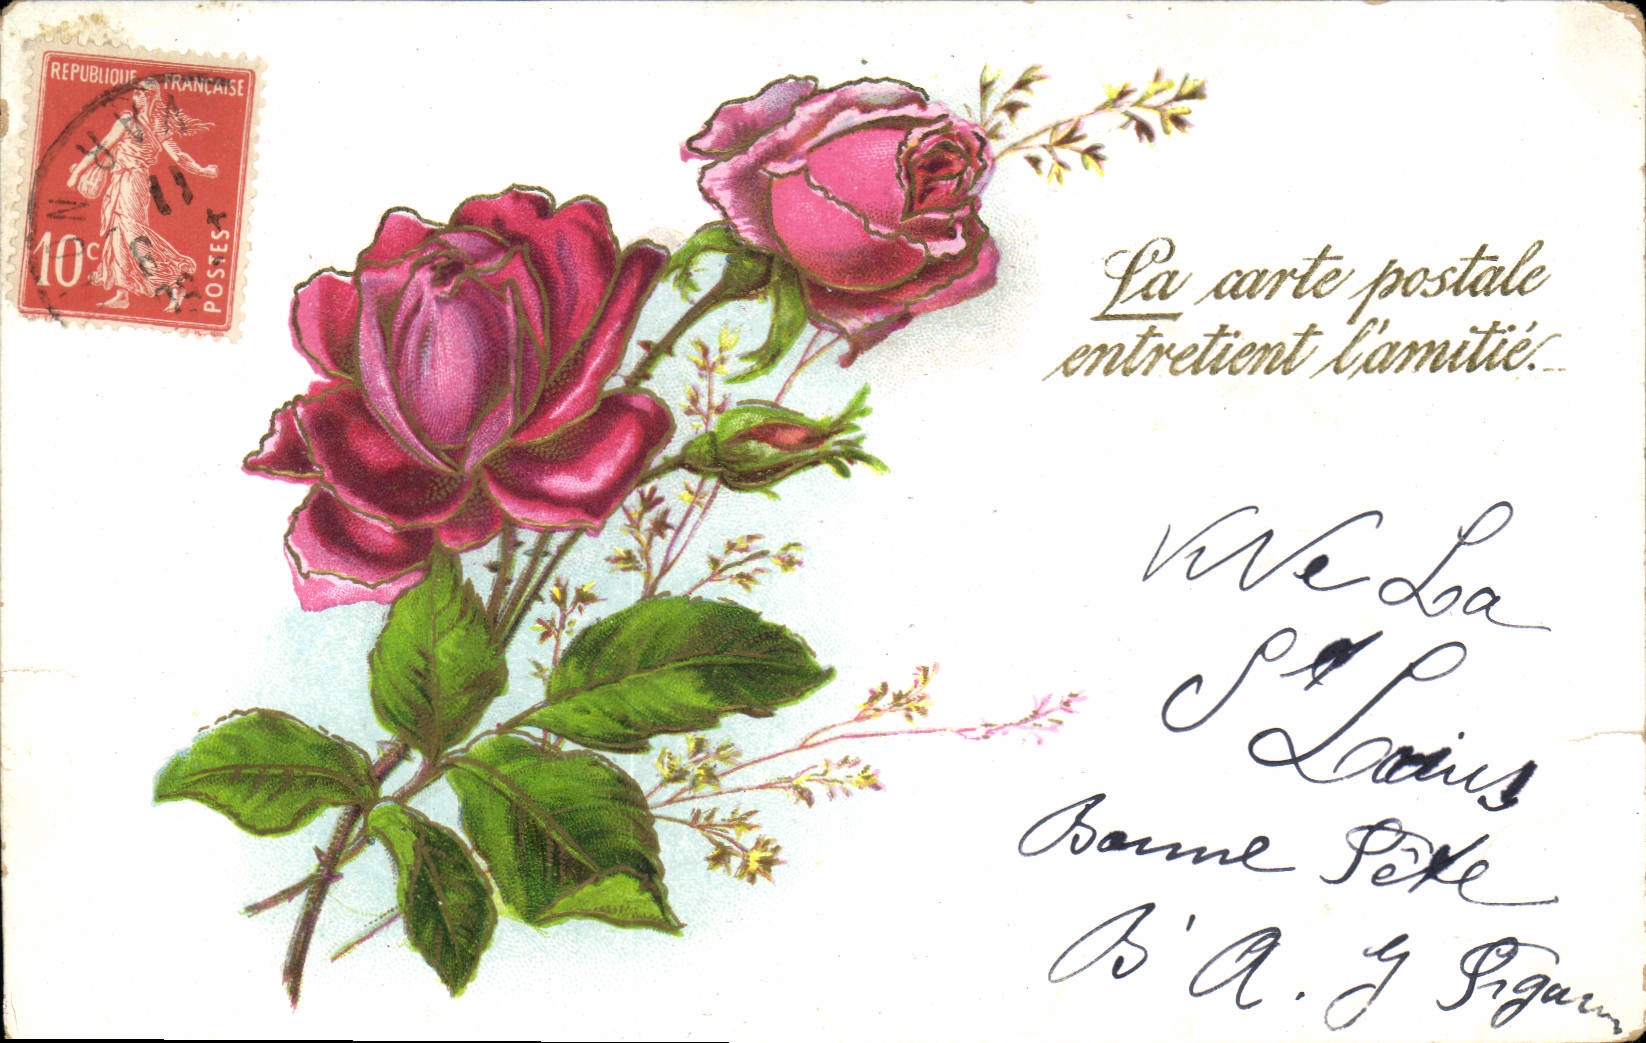 REPUBLIQUE FRANÇAISE
10c
POSTES
La carte postale
entretient l'amitié...
Vive La
St
Louis
Bonne Fête